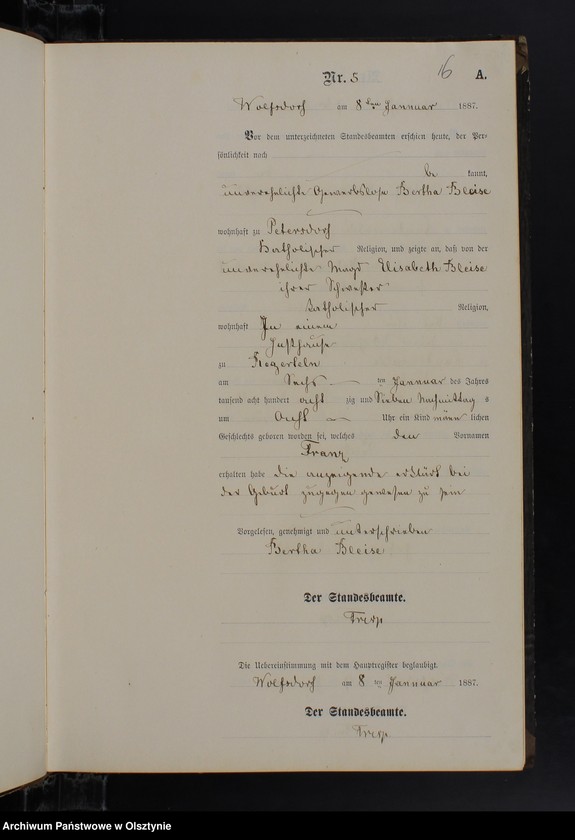 16
Nr. 5 A.
Wolfsdorf am 8ten Januar 1887.
Vor dem unterzeichneten Standesbeamten erschien heute, der Per-
sönlichkeit nach
be kannt,
unverehelichte Gewerbslose Bertha Bleise
wohnhaft zu Petersdorf
katholischer Religion, und zeigte an, daß von der
unverehelichte Magd Elisabeth Bleise
ihrer Schwester
katholischer Religion,
wohnhaft In einem
Insthause
zu
am Sechs ten Januar des Jahres
tausend acht hundert acht zig und Sieben Nachmittag s
um Acht Uhr ein Kind männ lichen
Geschlechts geboren worden sei, welches den Vornamen
Franz
erhalten habe die anzeigende erklärt bei
der Geburt zugegen gewesen zu sein
Vorgelesen, genehmigt und unterschrieben
Bertha Bleise
Der Standesbeamte.
Die Uebereinstimmung mit dem Hauptregister beglaubigt.
Wolfsdorf am 8 ten Januar 1887.
Der Standesbeamte.
Archiwum Państwowe w Olsztynie